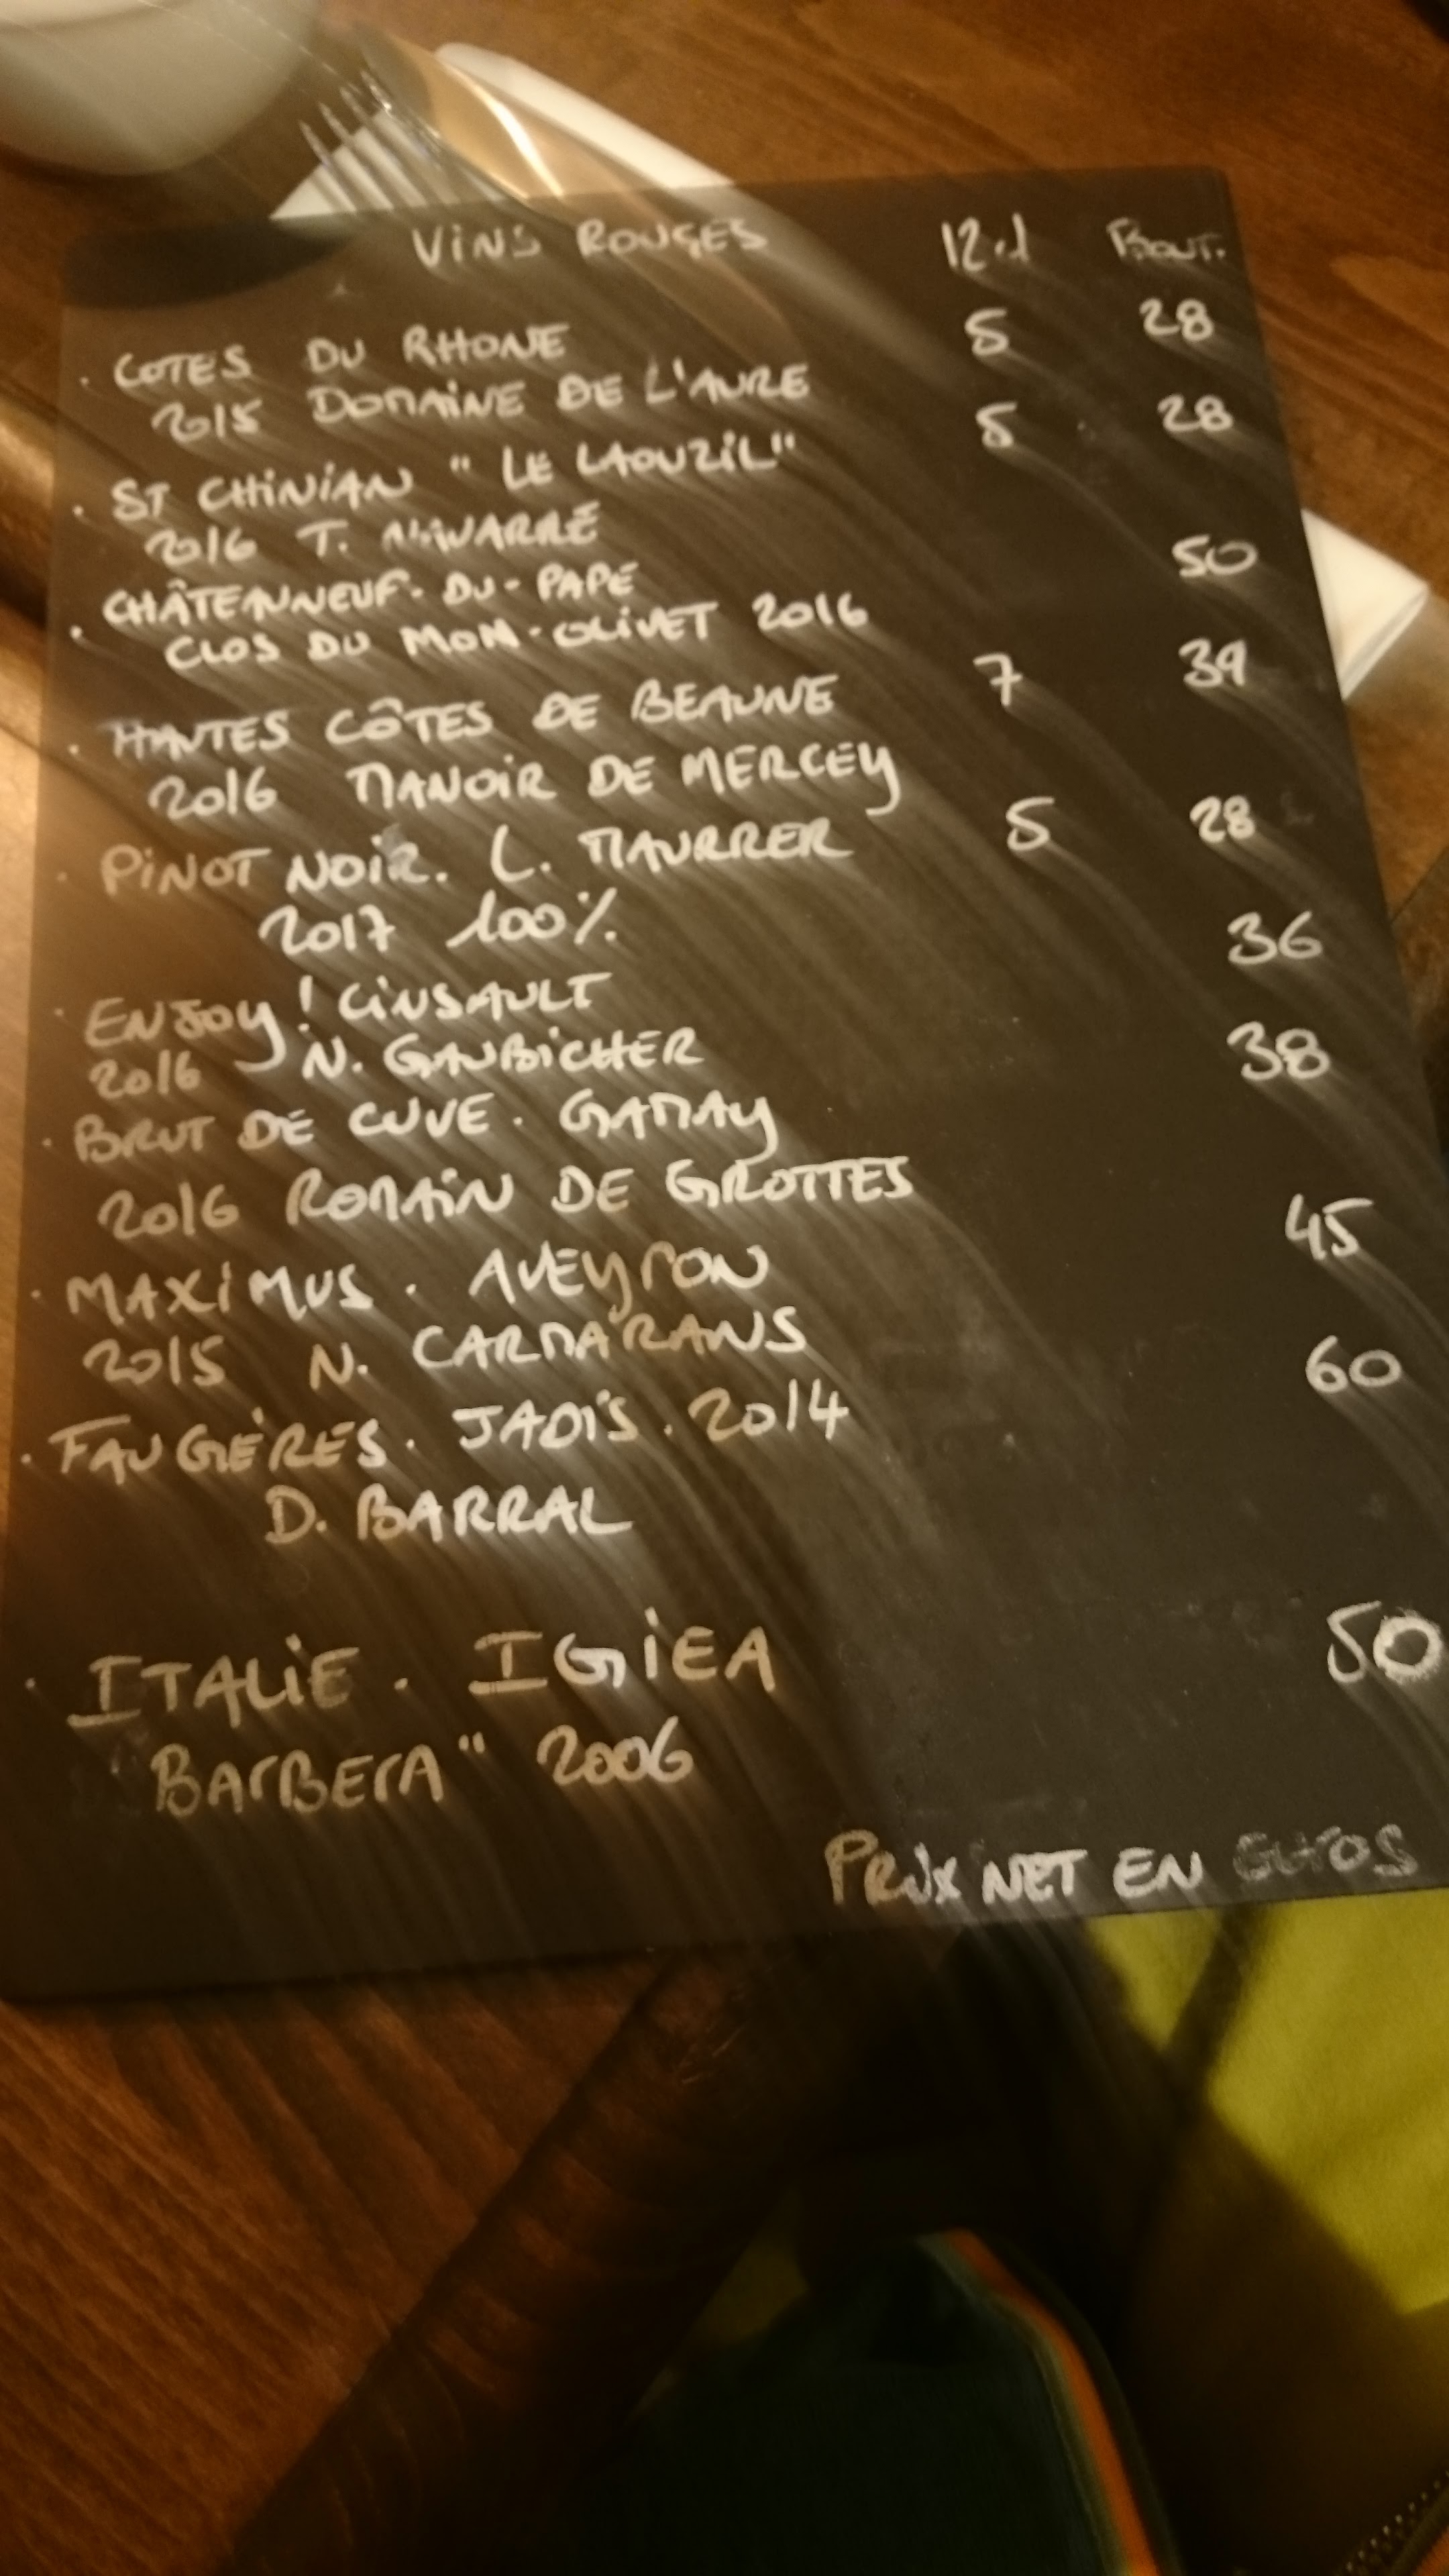 VINS ROUGES 12cl Bout.
· COTES DU RHONE 5 28
2015 DOMAINE DE L'AURE
· ST CHINIAN "LE LAOUZIL" 5 28
2016 T. NAVARRE
· CHÂTEAUNEUF-DU-PAPE 50
CLOS DU MON-OLIVET 2016
· HAUTES CÔTES DE BEAUNE 7 39
2016 MANOIR DE MERCEY
· PINOT NOIR. L. MAURRER 5 28
2017 100%
· ENJOY! CINSAULT 36
2016 N. GAUBICHER
· BRUT DE CUVE. GAMAY 38
2016 ROMAIN DE GROTTES
· MAXIMUS. AVEYRON 45
2015 N. CARMARANS
· FAUGÈRES. JADIS. 2014 60
D. BARRAL
· ITALIE. IGIEA 50
"BARBERA" 2006
PRIX NET EN EUROS